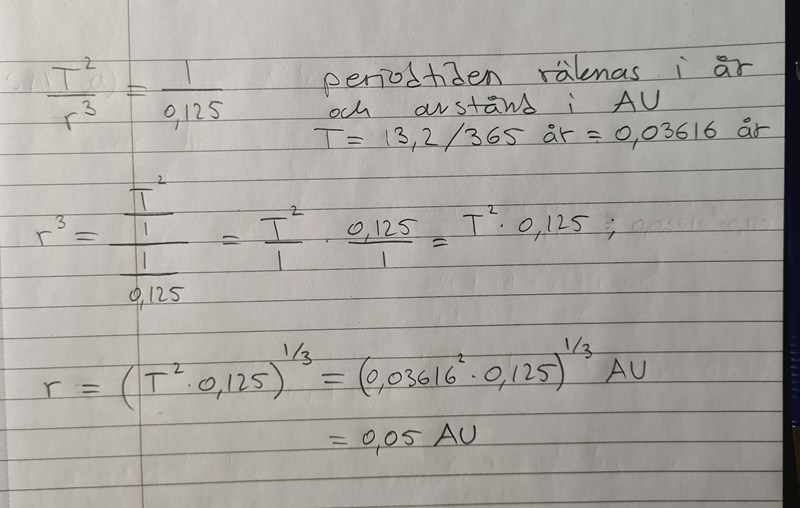 T²/r³ = 1/0,125
periodtiden räknas i år
och avstånd i AU
T = 13,2/365 år = 0,03616 år
r³ = (T²/1)/(1/0,125) = T²/1 · 0,125/1 = T² · 0,125 ;
r = (T² · 0,125)^1/3 = (0,03616² · 0,125)^1/3 AU
= 0,05 AU